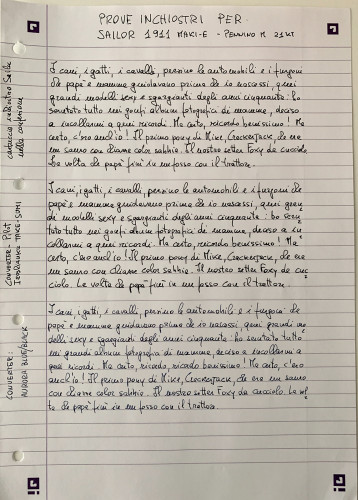 PROVE INCHIOSTRI PER
SAILOR 1911 MAKI-E - PENNINO M 21KT
cartuccia inchiostro Sailor
nella confezione
I cani, i gatti, i cavalli, persino le automobili e i furgoni
che papà e mamma guidavano prima che io nascessi, quei
grandi modelli sexy e sgargianti degli anni cinquanta: ho
sfruttato tutto nei gonfi album fotografici di mamma, deciso
a incollarmi a quei ricordi. Ma certo, ricordo benissimo! Ma
certo, c'ero anch'io! Il primo pony di Mike, Crackerjack, che era
un sauro con chiazze color sabbia. Il nostro setter Foxy da cucciolo.
La volta che papà finì in un fosso con il trattore.
CONVERTER - Pilot
Iroshizuku TAKE-SUMI
I cani, i gatti, i cavalli, persino le automobili e i furgoni che
papà e mamma guidavano prima che io nascessi, quei gran
di modelli sexy e sgargianti degli anni cinquanta: ho
tutto nei gonfi album fotografici di mamma, deciso a in
collarmi a quei ricordi. Ma certo, ricordo benissimo! Ma
certo, c'ero anch'io! Il primo pony di Mike, Crackerjack, che era
un sauro con chiazze color sabbia. Il nostro setter Foxy da cuc
ciolo. La volta che papà finì in un fosso con il trattore.
CONVERTER:
AURORA BLUE/BLACK
I cani, i gatti, i cavalli, persino le automobili e i furgoni che
papà e mamma guidavano prima che io nascessi, quei grandi mo
delli sexy e sgargianti degli anni cinquanta: ho tutto
nei grandi album fotografici di mamma, deciso a incollarmi a
quei ricordi. Ma certo, ricordo, ricordo benissimo! Ma certo, c'ero
anch'io! Il primo pony di Mike, Crackerjack, che era un sauro
con chiazze color sabbia. Il nostro setter Foxy da cucciolo. La vol
ta che papà finì in un fosso con il trattore.